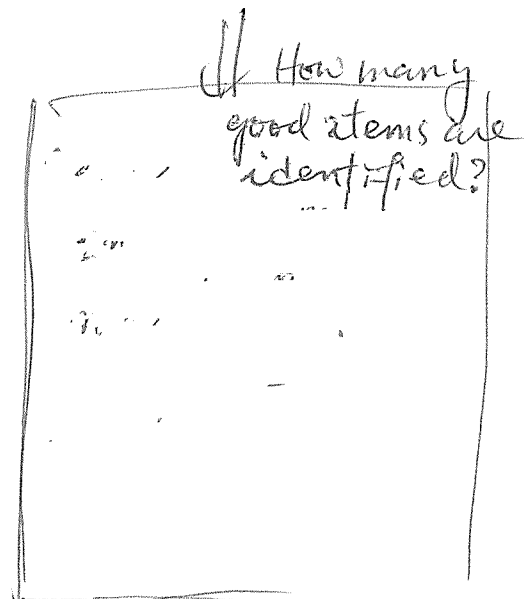 How many
good items are
identified?